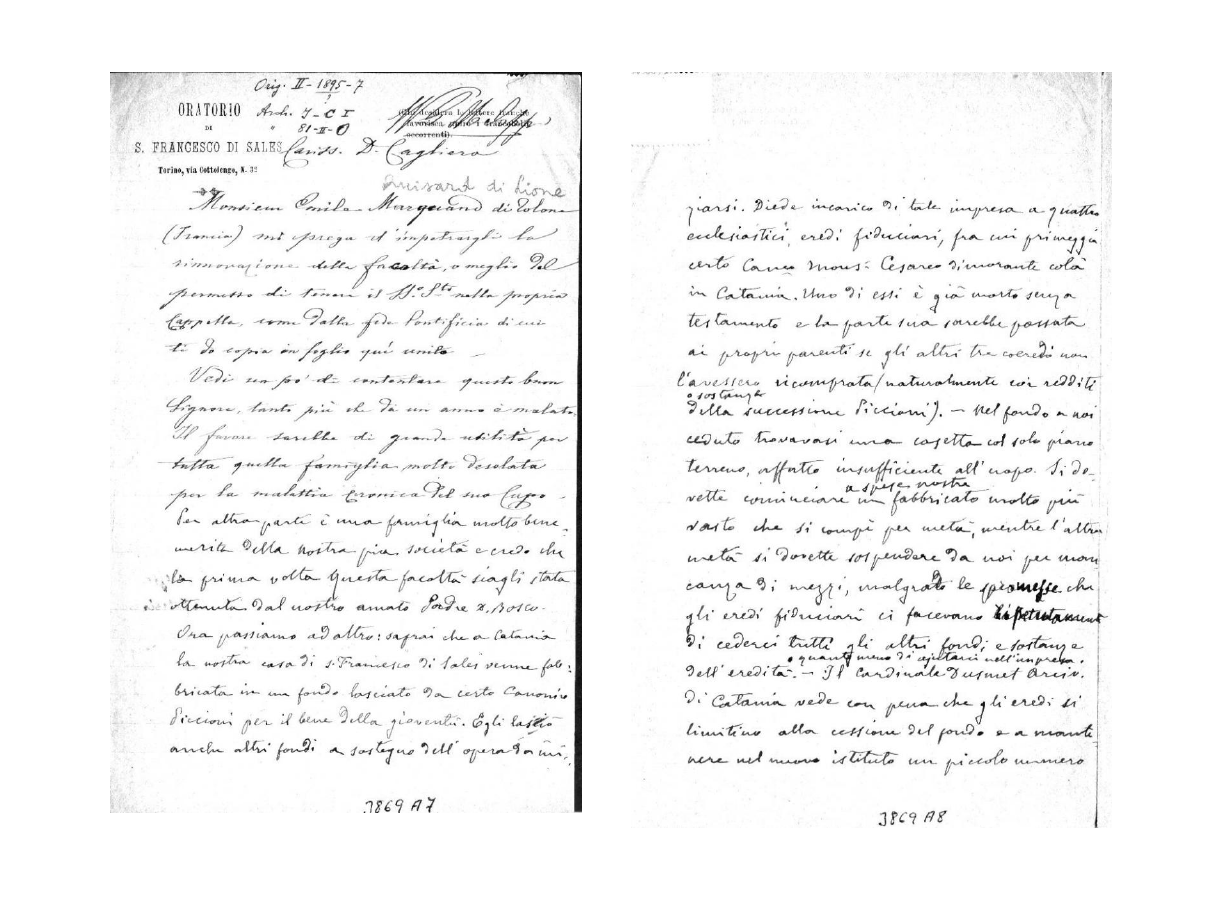 Orig. II - 1895 - 7
ORATORIO
Arch. J - C I
DI
" 81-II-O
S. FRANCESCO DI SALES
Torino, via Cottolengo, N. 32
(Chi desidera le lettere franche
favorisca
occorrenti).
Cariss. D. Cagliero
Quisard di Lione
Monsieur Emile Marquand di Tolone
(Francia) mi prega d'impetrargli la
rinnovazione della facoltà, o meglio del
permesso di tenere il SS.o S.to nella propria
Cappella, come dalla fede Pontificia di cui
ti do copia in foglio qui unito
Vedi un po' di contentare questo buon
Signore, tanto più che da un anno è malato.
Il favore sarebbe di grande utilità per
tutta quella famiglia molto desolata
per la malattia cronica del suo Capo.
Per altra parte è una famiglia molto bene
merita della nostra pia società e credo che
la prima volta questa facoltà siagli stata
ottenuta dal nostro amato Padre D. Bosco.
Ora passiamo ad altro: saprai che a Catania
la nostra casa di S. Francesco di Sales venne fab:
bricata in un fondo lasciato da certo Canonico
Piccioni per il bene della gioventù. Egli lasciò
anche altri fondi a sostegno dell'opera da ini,
3869 A7
ziarsi. Diede incarico di tale impresa a quattro
ecclesiastici, eredi fiduciari, fra cui primeggia
certo Can.co Mons: Cesareo dimorante colà
in Catania. Uno di essi è già morto senza
testamento e la parte sua sarebbe passata
ai propri parenti se gli altri tre coeredi non
l'avessero ricomprata (naturalmente coi redditi
o sostanze
della successione Piccioni). - Nel fondo a noi
ceduto trovavasi una casetta col solo piano
terreno, affatto insufficiente all'uopo. Si do-
a spese nostre
vette cominciare un fabbricato molto più
vasto che si compì per metà, mentre l'altra
metà si dovette sospendere da noi per man
canza di mezzi, malgrado le promesse che
gli eredi fiduciari ci facevano ripetutamente
di cederci tutti gli altri fondi e sostanze
o quanto meno di ajutarci nell'impresa.
dell'eredità. - Il Cardinale Dusmet Arciv.
di Catania vede con pena che gli eredi si
limitino alla cessione del fondo e a mante
nere nel nuovo istituto un piccolo numero
3869 A8